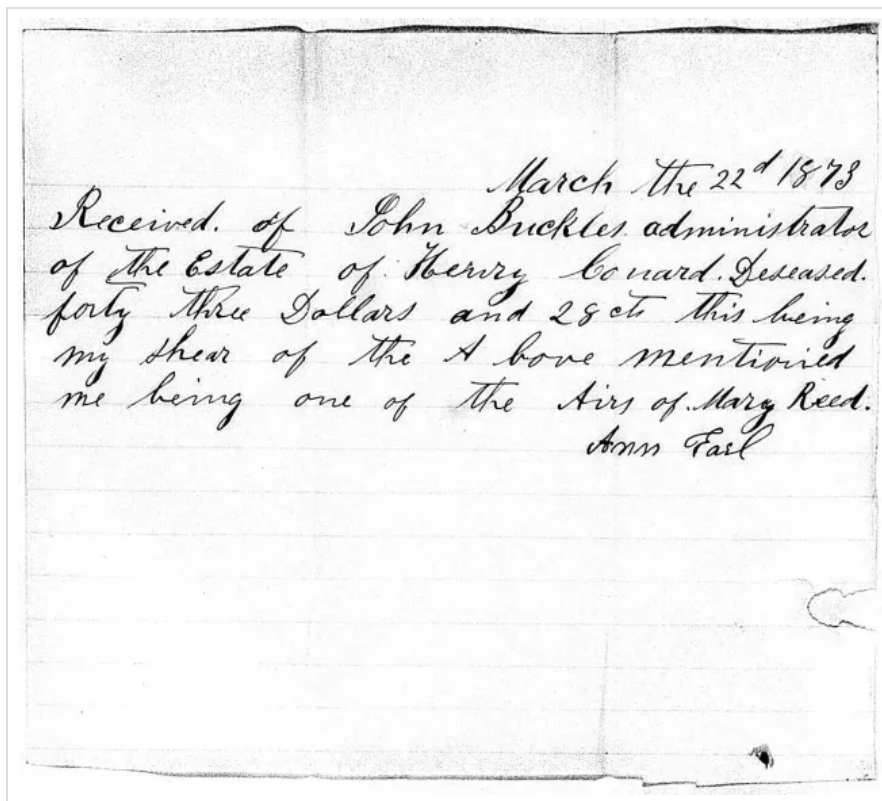 March the 22d 1873
Received. of John Buckles. administrator
of the Estate of Henry Conard. Deseased.
forty three Dollars and 28 cts this being
my shear of the A bove mentioined
me being one of the Airs of. Mary Reed.
Ann Earl